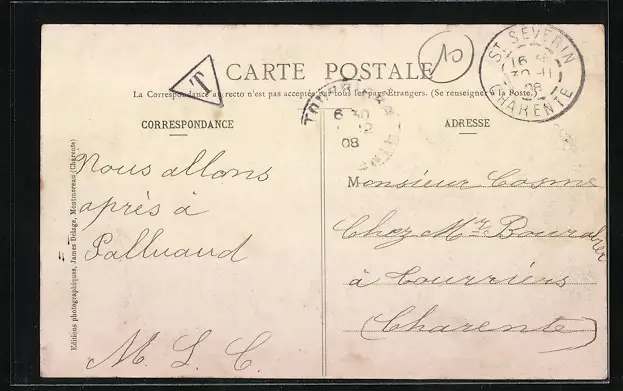 T
CARTE POSTALE
10
La Correspondance au recto n'est pas acceptée par tous les pays Étrangers. (Se renseigner à la Poste.)
ST SEVERIN
16
30 -11
08
CHARENTE
6 30
12
08
CORRESPONDANCE
ADRESSE
Nous allons
après à
Palluaud
M. L. C.
Editions photographiques, James Delage, Montmoreau (Charente)
Monsieur Cagme
Chez Mr. Bourabier
à Tourriers
(Charente)